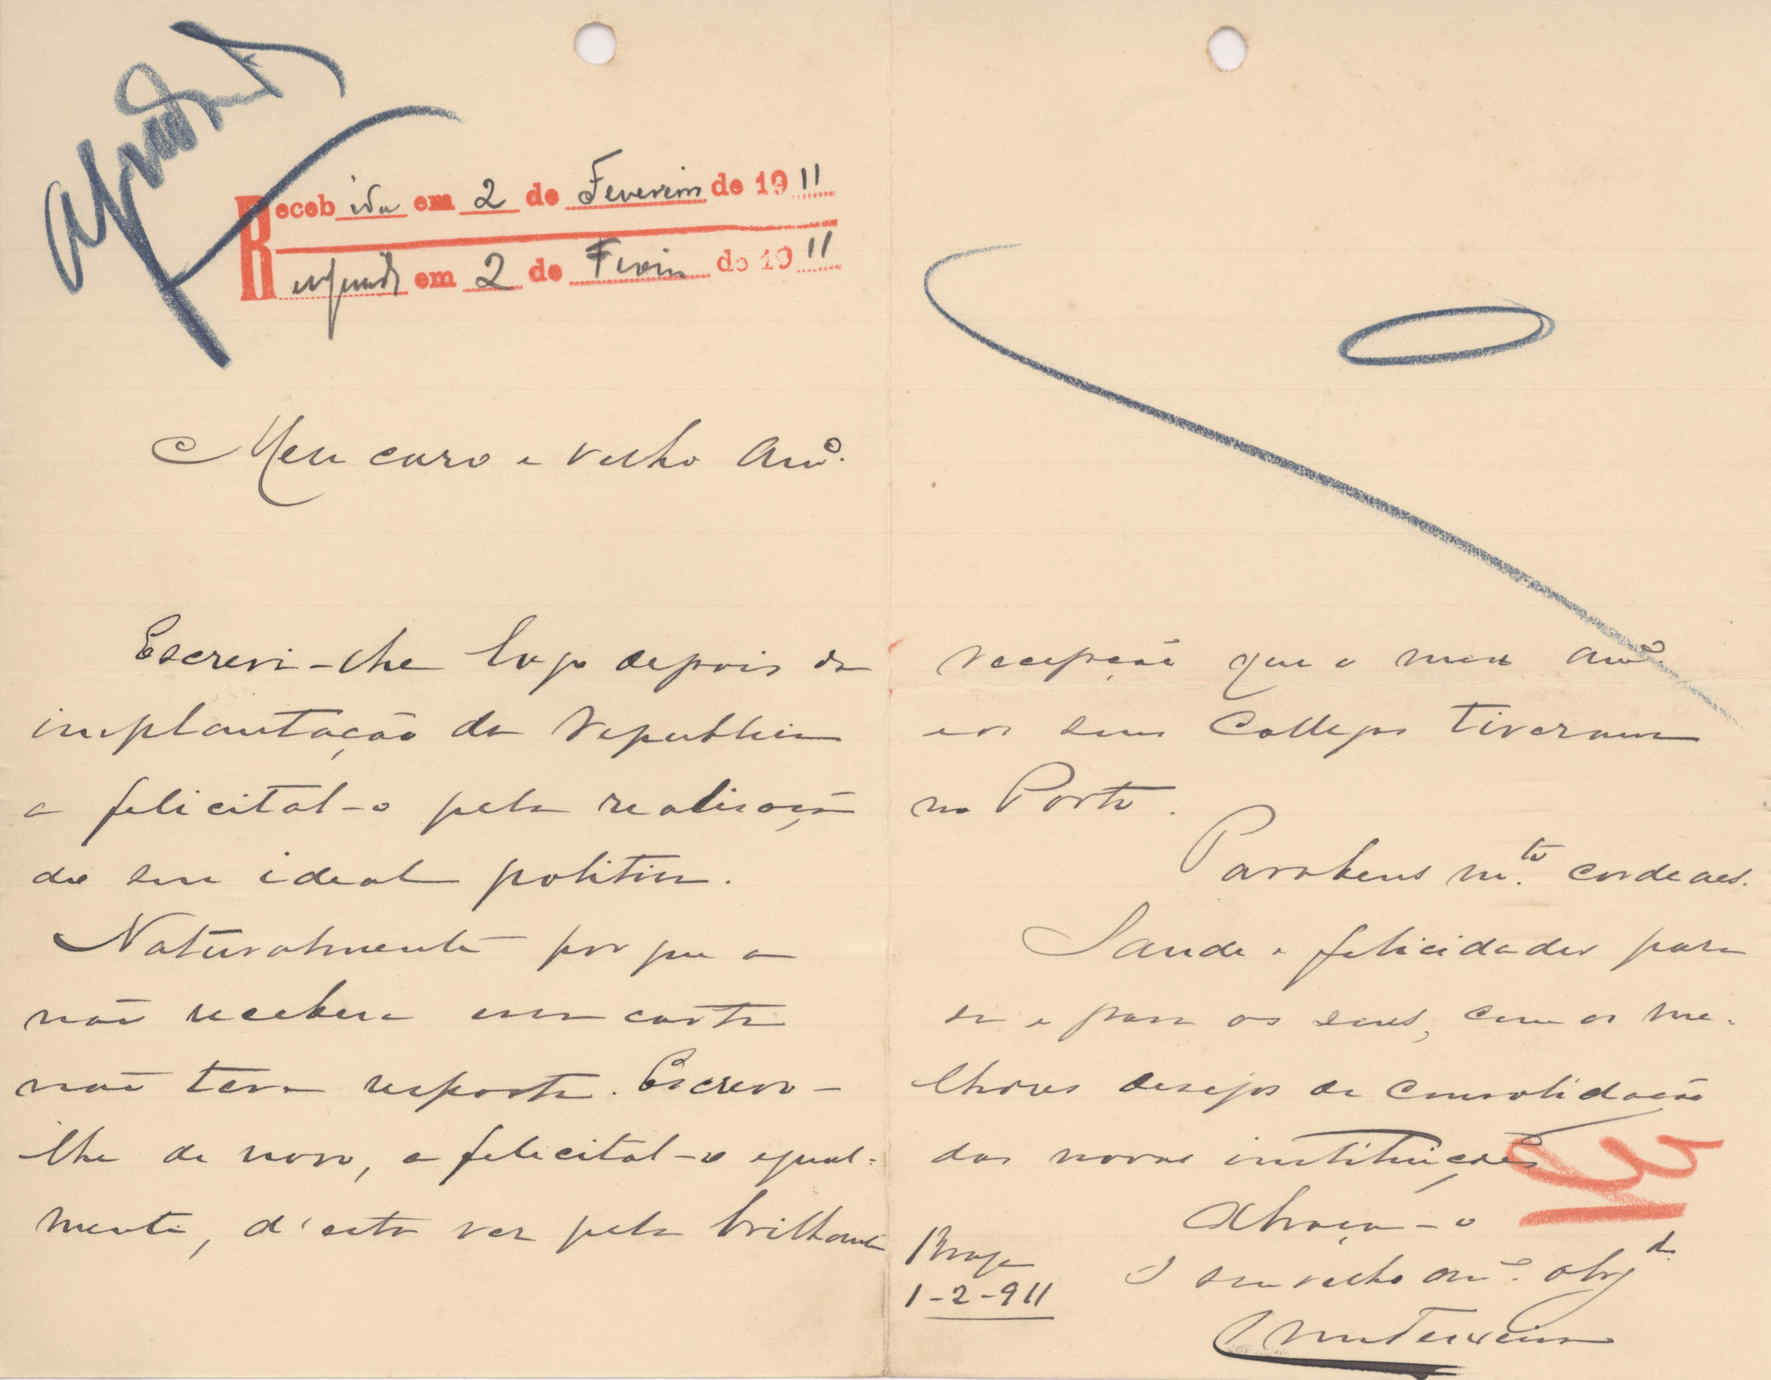 Recebida em 2 de Fevereiro de 1911
Respondi em 2 de Feverº de 1911
Meu caro e velho Amº.
Escrevi-lhe logo depois da
implantação da Republica
a felicital-o pela realisação
do seu ideal politico.
Naturalmente porque a
não recebera essa carta
não teve resposta. Escrevo-
lhe de novo, a felicital-o egual-
mente, d'esta vez pela brilhante
recepção que o meu Amº.
e os seus Collegas tiveram
no Porto.
Parabens m.to cordeaes.
Saude e felicidades para
si e para os seus, com os me-
lhores desejos de consolidação
das novas instituições
Abraça-o
O seu velho am.º obrg.do
Braga
1-2-911